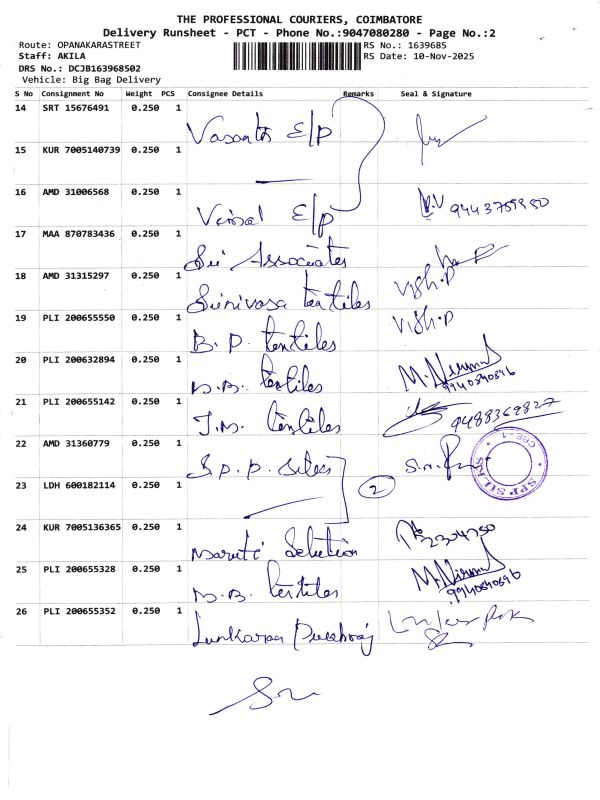 THE PROFESSIONAL COURIERS, COIMBATORE
Delivery Runsheet - PCT - Phone No.:9047080280 - Page No.:2
Route: OPANAKARASTREET RS No.: 1639685
Staff: AKILA RS Date: 10-Nov-2025
DRS No.: DCJB163968502
Vehicle: Big Bag Delivery
S No Consignment No Weight PCS Consignee Details Remarks Seal & Signature
14 SRT 15676491 0.250 1 Vasantha E/P
15 KUR 7005140739 0.250 1
16 AMD 31006568 0.250 1 Vimal E/P
17 MAA 870783436 0.250 1 Sri Associates
18 AMD 31315297 0.250 1 Srinivasa textiles Vish.P
19 PLI 200655550 0.250 1 B. P. textiles Vish.P
20 PLI 200632894 0.250 1 textiles M.Nirmal
21 PLI 200655142 0.250 1 J.M. textiles 9488362827
22 AMD 31360779 0.250 1 S.P.P. Silks
23 LDH 600182114 0.250 1 2 SPP SILKS CBE-1
24 KUR 7005136365 0.250 1 Maruti Selection
25 PLI 200655328 0.250 1 textiles M.Nirmal
26 PLI 200655352 0.250 1 Lunkaran